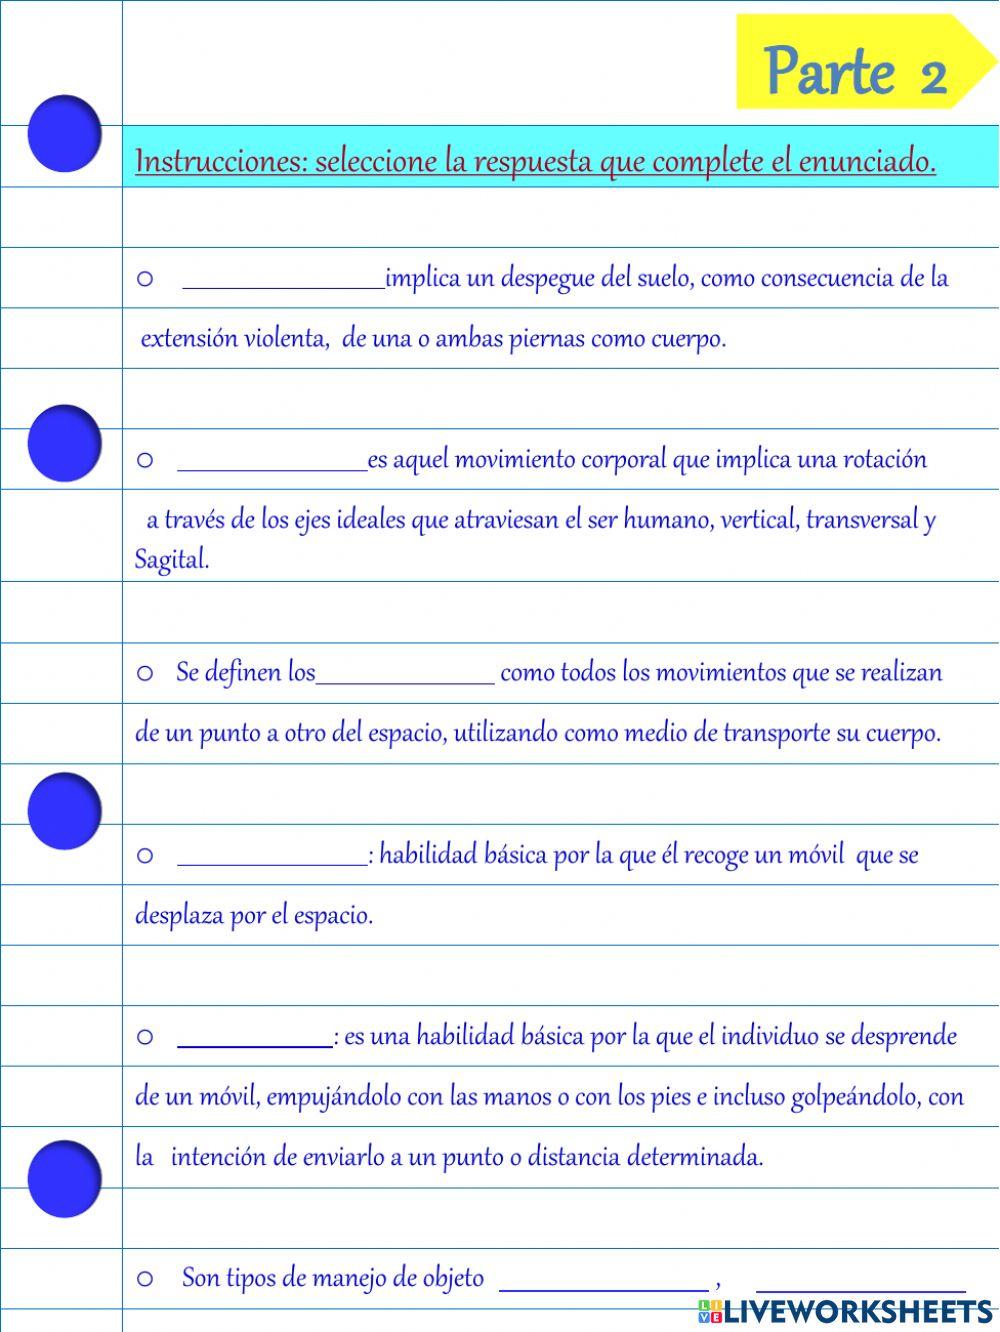 Parte 2
Instrucciones: seleccione la respuesta que complete el enunciado.
o _______________implica un despegue del suelo, como consecuencia de la
extensión violenta, de una o ambas piernas como cuerpo.
o ______________es aquel movimiento corporal que implica una rotación
a través de los ejes ideales que atraviesan el ser humano, vertical, transversal y
Sagital.
o Se definen los_____________ como todos los movimientos que se realizan
de un punto a otro del espacio, utilizando como medio de transporte su cuerpo.
o ______________: habilidad básica por la que él recoge un móvil que se
desplaza por el espacio.
o ___________: es una habilidad básica por la que el individuo se desprende
de un móvil, empujándolo con las manos o con los pies e incluso golpeándolo, con
la intención de enviarlo a un punto o distancia determinada.
o Son tipos de manejo de objeto _______________ , _______________
LIVE LIVEWORKSHEETS